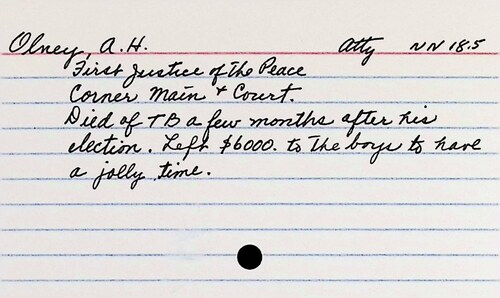 Olney, A.H. Atty NN 18.5
First Justice of the Peace
Corner Main + Court.
Died of TB a few months after his
election. Left $6000. to the boys to have
a jolly time.